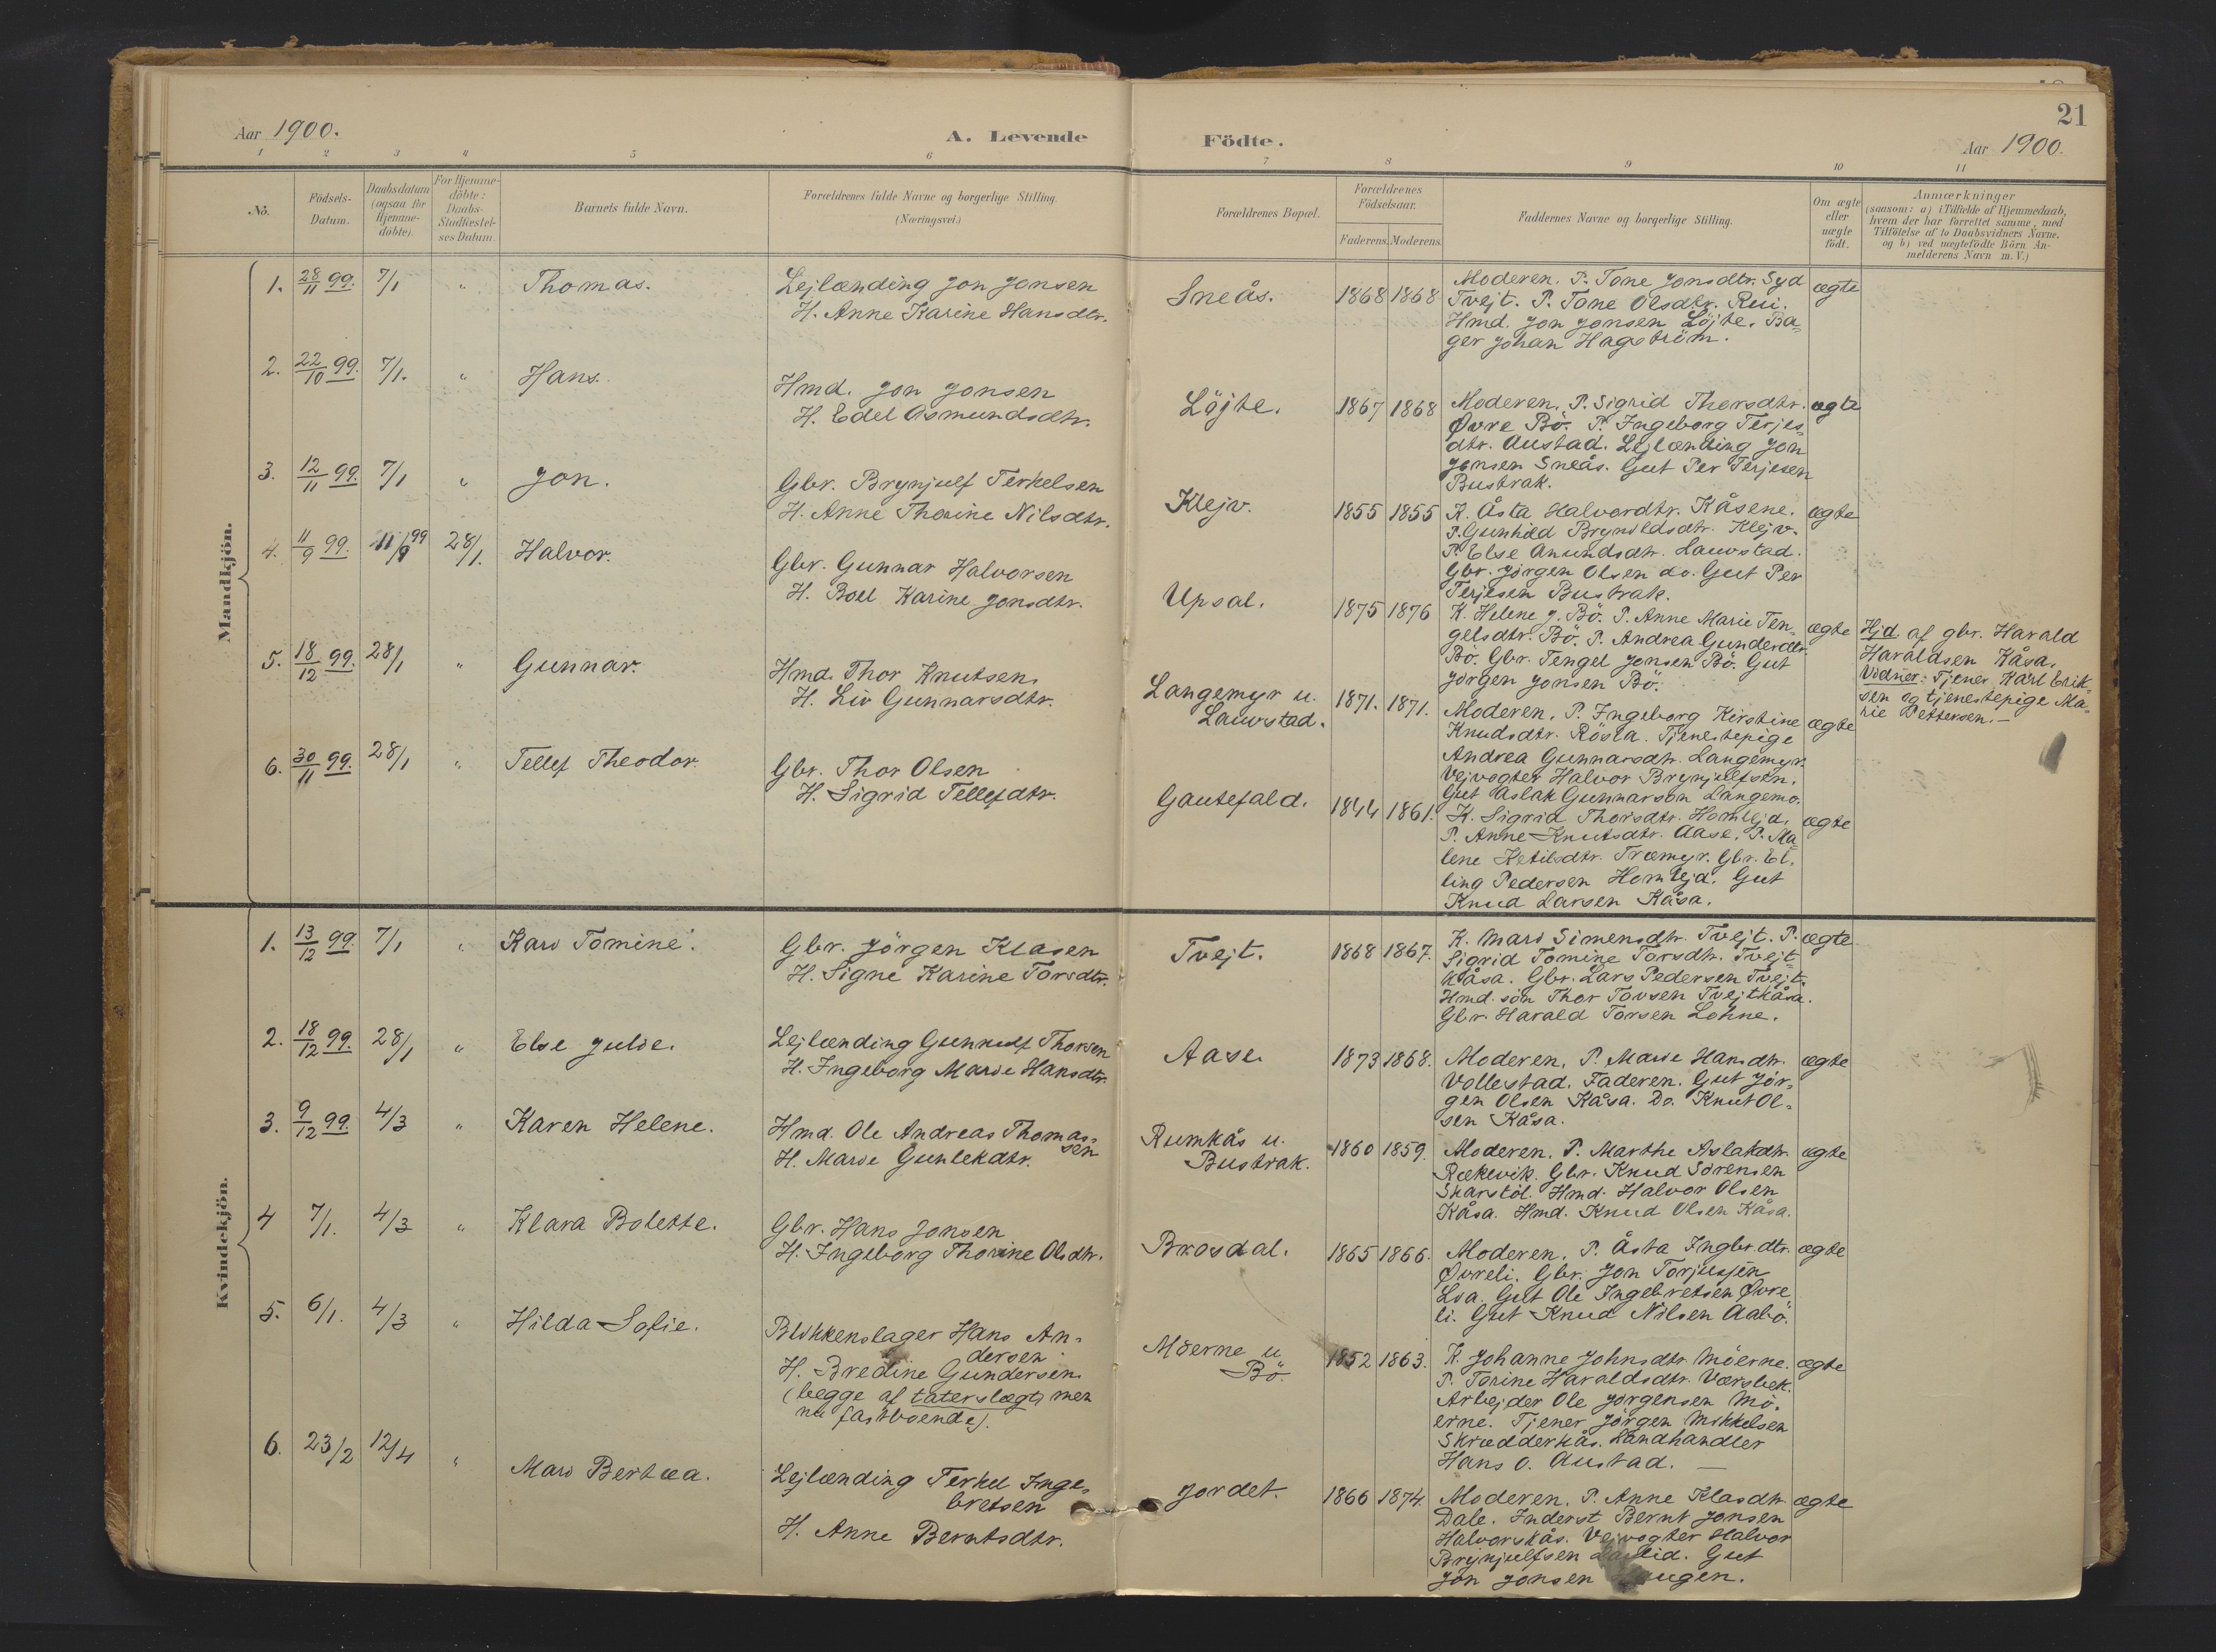 21
Aar 1900.
A. Levende
Födte.
Aar 1900.
1 2 3 4 5 6 7 8 9 10 11
No.
Födsels-
Datum.
Daabsdatum
(ogsaa for
Hjemme-
døbte).
For Hjemme-
döbte:
Daabs-
Stadfæstel-
ses Datum.
Barnets fulde Navn.
Forældrenes fulde Navne og borgerlige Stilling.
(Næringsvei.)
Forældrenes Bopæl.
Forældrenes
Födselsaar.
Faderens. Moderens.
Faddernes Navne og borgerlige Stilling.
Om ægte
eller
uægte
födt.
Anmærkninger
(saasom: a) i Tilfælde af Hjemmedaab,
hvem der har forrettet samme, med
Tilföielse af to Daabsvidners Navne,
og b) ved uægtefödte Börn An-
melderens Navn m. V.)
Mandkjön.
1. 28/11 99. 7/1 " Thomas.
Lejlænding Jon Jonsen
H. Anne Karine Hansdtr.
Sneås.
1868 1868
Moderen. P. Tone Jonsdtr. Syd
Tvejt. P. Tone Olsdtr. Rui.
Hmd. Jon Jonsen Löjte. Ba-
ger Johan Hagström.
ægte
2. 22/10 99. 7/1. " Hans.
Hmd. Jon Jonsen
H. Edel Asmundsdtr.
Löjte.
1867 1868
Moderen. P. Sigrid Thorsdtr.
Øvre Bö. P. Ingeborg Terjes-
dtr. Austad. Lejlænding Jon
Jensen Sneås. Gut Per Terjesen
Bustrak.
ægte
3. 12/11 99. 7/1 " Jon.
Gbr. Brynjulf Terkelsen
H. Anne Thorine Nilsdtr.
Klejv.
1855 1855
K. Åsta Halvordtr. Kåsene.
P. Gunhild Brynildsdtr. Klejv.
P. Else Anundsdtr. Lauvstad.
Gbr. Jörgen Olsen do. Gut Per
Terjesen Bustrak.
ægte
4. 11/9 99. 11/9 99 28/1. Halvor.
Gbr. Gunnar Halvorsen
H. Boel Karine Jonsdtr.
Upsal.
1875 1876
K. Helene J. Bö. P. Anne Marie Ten-
gelsdtr. Bö. P. Andrea Gundersdtr.
Bö. Gbr. Tengel Jonsen Bö. Gut
Jörgen Jonsen Bö.
ægte
Hjd. af gbr. Harald
Haraldsen Kåsa.
Vidner: Tjener Karl Erik-
sen og tjenestepige Ma-
rie Pettersen.—
5. 18/12 99. 28/1 " Gunnar.
Hmd. Thor Knutsen.
H. Liv Gunnarsdtr.
Langemyr u.
Lauvstad.
1871. 1871.
Moderen. P. Ingeborg Kirstine
Knudsdtr. Rösla. Tjenestepige
Andrea Gunnarsdtr. Langemyr.
Vejvogter Halvor Brynjulfsen.
Gut Aslak Gunnarson Langemo.
ægte
6. 30/11 99. 28/1 " Tellef Theodor.
Gbr. Thor Olsen
H. Sigrid Tellefdtr.
Gautefald.
1844 1861.
K. Sigrid Thorsdtr. Homlejd.
P. Anne Knutsdtr. Aase. P. Ma
lene Ketilsdtr. Træmyr. Gbr. El-
ling Pedersen Homlejd. Gut
Knud Larsen Kåsa.
ægte
Kvindekjön.
1. 13/12 99. 7/1 " Kari Tomine.
Gbr. Jörgen Klasen
H. Signe Karine Torsdtr.
Tvejt.
1868 1867.
K. Mari Simensdtr. Tvejt. P.
Sigrid Tomine Torsdtr. Tvejt-
kåsa. Gbr. Lars Pedersen Tvejt.
Hmd. sön Thor Tovsen Tvejtkåsa.
Gbr. Harald Torsen Lohne.
ægte
2. 18/12 99. 28/1 " Else Julie.
Lejlænding Gunnulf Thorsen
H. Ingeborg Marie Hansdtr.
Aase.
1873 1868.
Moderen. P. Marie Hansdtr.
Vollestad. Faderen. Gut Jör-
gen Olsen Kåsa. Do. Knut Ol-
sen Kåsa.
ægte
3. 9/12 99. 4/3 " Karen Helene.
Hmd. Ole Andreas Thomas-
sen
H. Marie Gunlekdtr.
Rumkås u.
Bustrak.
1860 1859.
Moderen. P. Marthe Aslakdtr.
Rækevik. Gbr. Knud Sörensen
Skarstöl. Hmd. Halvor Olsen
Kåsa. Hmd. Knud Olsen Kåsa.
ægte
4 7/1. 4/3 " Klara Bolette.
Gbr. Hans Jonsen
H. Ingeborg Thorine Olsdtr.
Brosdal.
1865 1866.
Moderen. P. Åsta Ingbr.dtr.
Øvreli. Gbr. Jon Torjussen
Lia. Gut Ole Ingebretsen Øvre
li. Gut Knud Nilsen Aabö.
ægte
5. 6/1. 4/3 " Hilda Sofie.
Blikkenslager Hans An-
dersen.
H. Bredine Gundersen
(begge af taterslægt, men
nu fastboende).
Möerne u.
Bö.
1852 1863.
K. Johanne Johnsdtr. Möerne.
P. Torine Haraldsdtr. Værsbek.
Arbejder Ole Jörgensen Mö-
erne. Tjener Jörgen Mikkelsen
Skrædderkås. Landhandler
Hans O. Austad. —
ægte
6. 23/2 12/4 " Mari Bertea.
Lejlænding Terkel Inge-
bretsen
H. Anne Berntsdtr.
Jordet.
1866 1874.
Moderen. P. Anne Klasdtr.
Dale. Inderst Bernt Jonsen
Halvorskås. Vejvogter Halvor
Brynjulfsen. Gut
Jon Jonsen
ægte